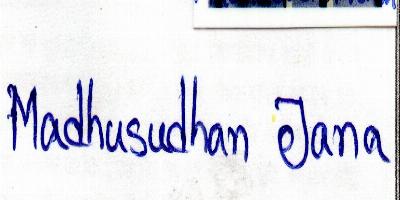 Madhusudhan Jana